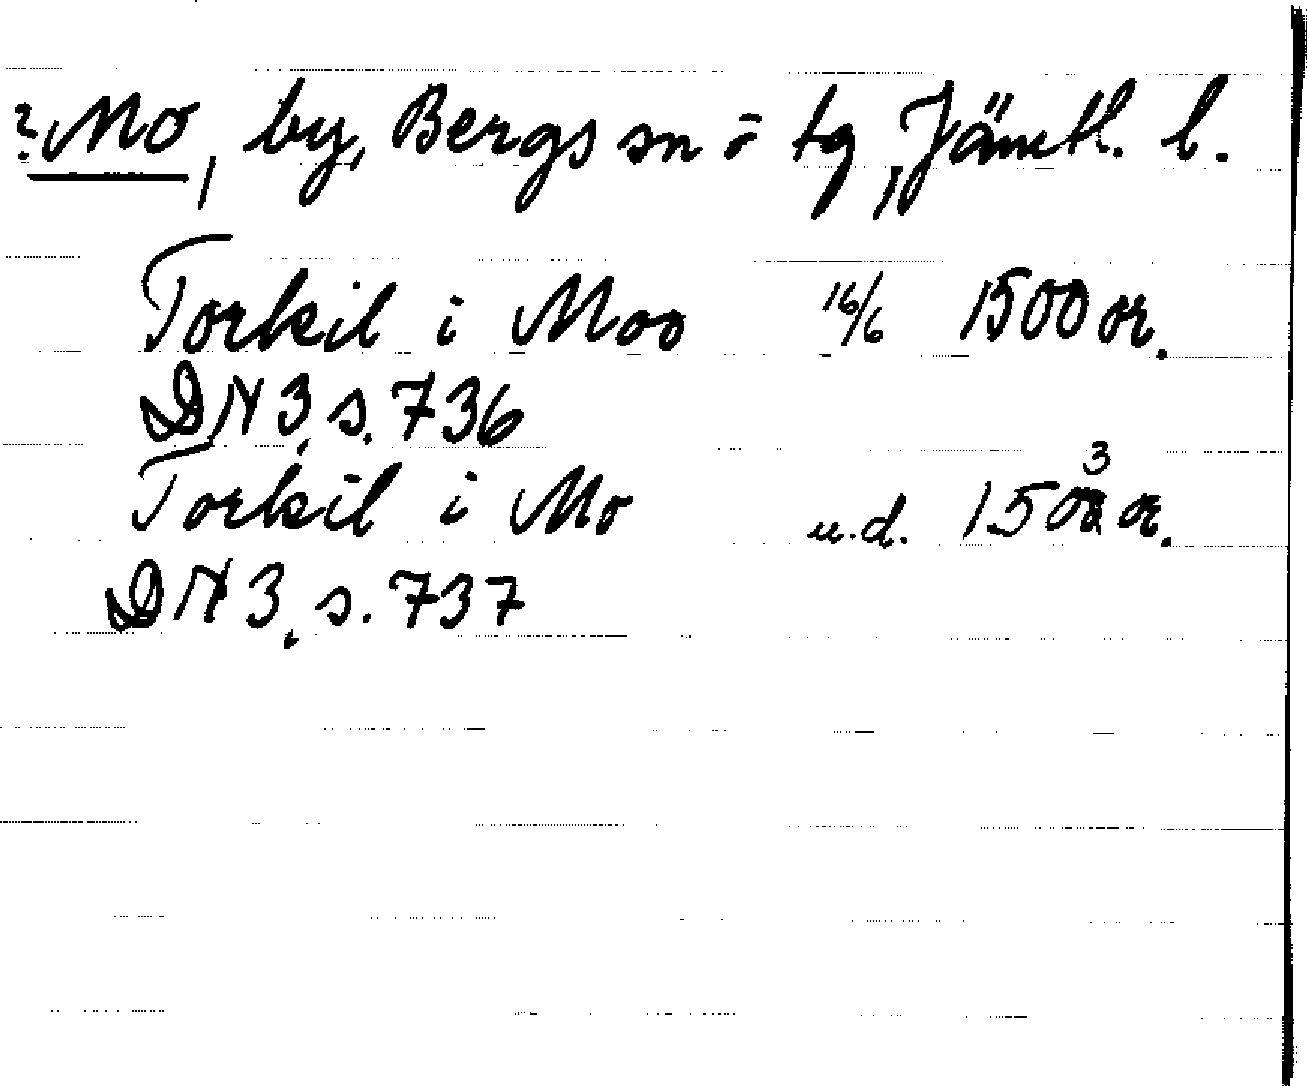 ?Mo, by, Bergs sn ö tg, Jämtl. l.
Torkil i Moo 16/6 1500 or.
DN 3, s. 736
Torkil i Mo u.d. 1503 or.
DN 3, s. 737